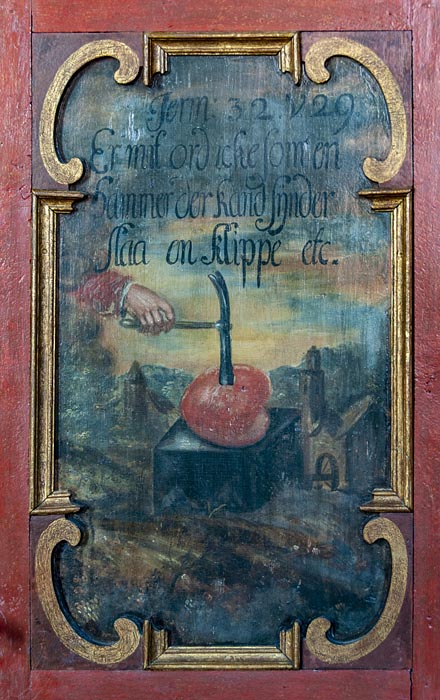 Jerm: 32 V 29.
Er mit ord icke som en
Hammer der kand synder
slaa en klippe etc.